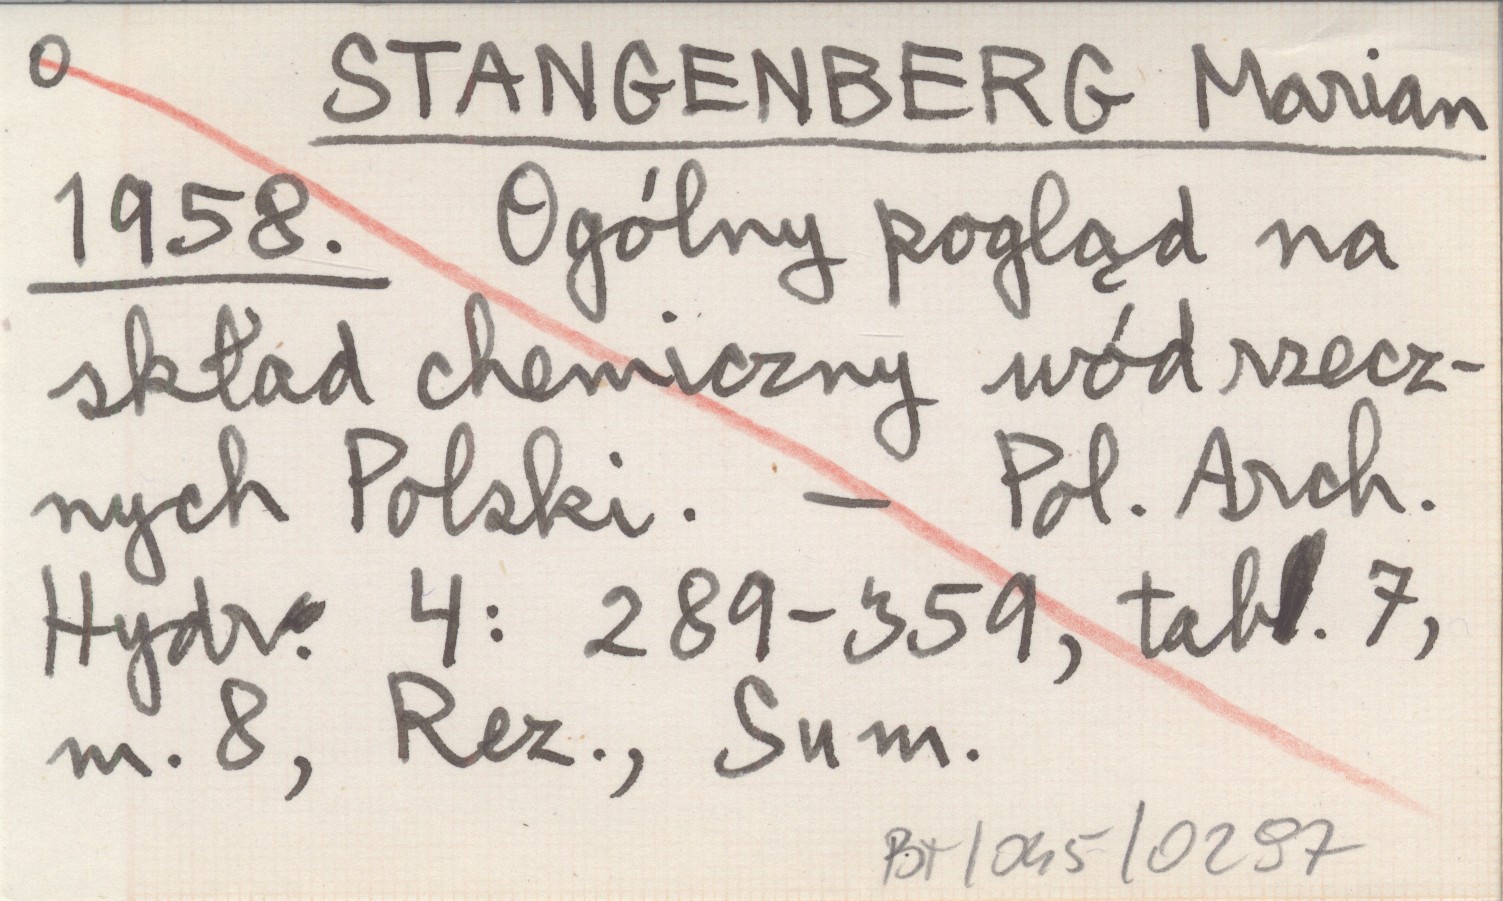 O STANGENBERG Marian
1958. Ogólny pogląd na
skład chemiczny wód rzecz-
nych Polski. — Pol. Arch.
Hydr. 4: 289-359, tab. 7,
m. 8, Rez., Sum.
BT/045/0297